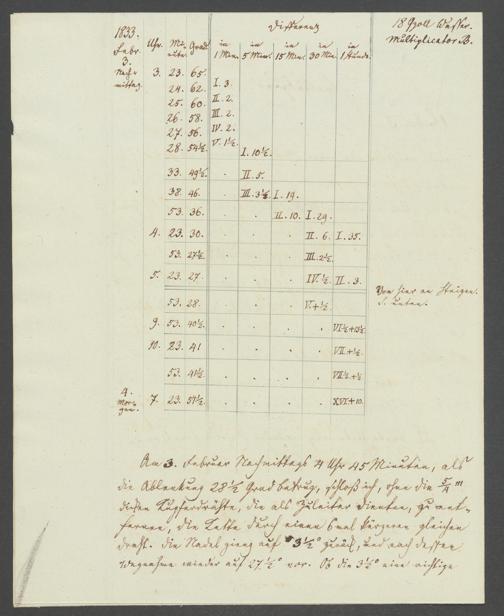 1833. Differenz 18 Zoll Wasser.
Febr. Uhr. Mi- Grad. in in in in in Multiplicator B.
3. nute. 1 Min. 5 Min. 15 Min. 30 Min. 1 Stunde.
Nach-
mittag. 3. 23. 65.
24. 62. I. 3.
25. 60. II. 2.
26. 58. III. 2.
27. 56. IV. 2.
28. 54½. V. 1½. I. 10½.
33. 49½. . II. 5.
38. 46. . III. 3½. I. 19.
53. 36. . . II. 10. I. 29.
4. 23. 30. . . . II. 6. I. 35.
53. 27½. . . . III. 2½.
5. 23. 27. . . . IV. ½. II. 3.
Von hier an Steigen.
53. 28. . . . V. +½.
9. 53. 40½. . . . . VI½+12½.
10. 23. 41 . . . . VII. +½.
53. 41½. . . . . VII½. +½
4.
Mor-
gen. 7. 23. 51½. . . . . XVI+10.
Am 3. Februar Nachmittags 4 Uhr 45 Minuten, als
die Ablenkung 28½ Grad betrug, schloß ich, ohne die 5/4 '''
dicken Kupferdrähte, die als Zuleiter dienten, zu ent-
fernen, die Kette durch einen 6mal kürzeren gleichen
Draht. Die Nadel ging auf 3½° zurück, und nach dessen
Wegnahme wieder auf 27½° vor. Ob die 3½° eine richtige